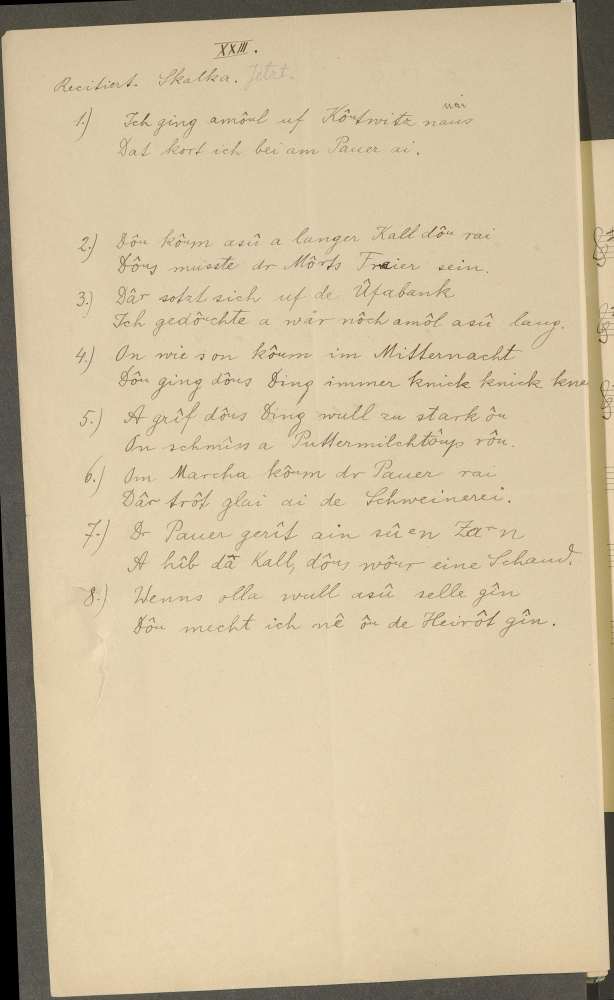 XXIII.
Recitiert. Skalka. Jetzt.
1.) Ich ging amôul uf Kôutwitz naus
Dat kort ich bei am Pauer ai.
2.) Dôu kôum asû a langer Kall dôu rai
Dôus musste dr Môrts Freier sein.
3.) Dâr sotzt sich uf de Ûfabank
Ich gedôuchte a wär nôch amôl asû lang.
4.) On wie son kôum im Mitternacht
Dôu ging dôus Ding immer knick knick kne
5.) A grîf dôus Ding wull zu stark ôu
On schmiss a Puttermilchtôup rôu.
6.) Om Marcha kôum dr Pauer rai
Dâr trôt glai ai de Schweinerei.
7.) Dr Pauer gerît ain sûen Zarn
A hîb dâ Kall, dôus wôur eine Schand.
8.) Wenns olla wull asû selle gîn
Dôu mecht ich nê ôu de Heirôt gîn.